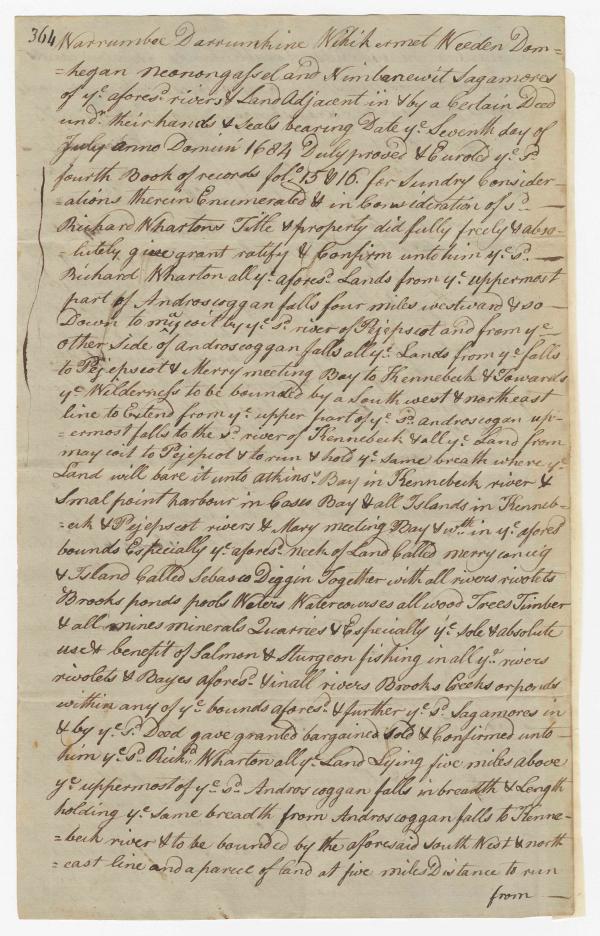 364
Warrumbee Darrumhine Wihikermet Weeden Dom=
=hegan Neonongassel and Nimbanewit Sagamores
of ye. aforesd. rivers & Land Adjacent in & by a Certain Deed
undr. their hands & Seals bearing Date ye. Seventh day of
July anno Domini 1684 Duly proved & Enroled ye. sd.
fourth Book of records folo. 15 & 16. for Sundry Consider=
=ations therein Enumerated & in Consideration of sd. —
Richard Whartons Title & property did fully freely & abso=
=lutely give grant ratify & Confirm unto him ye. sd. —
Richard Wharton all ye. aforesd. Lands from ye. uppermost
part of Androscoggan falls four miles westward & so —
Down to maycoit by ye. sd. river of Pejepscot and from ye —
other Side of Androscoggan falls all ye. Lands from ye. falls
to Pejepscot & Merry meeting Bay to Kennebeck & Towards
ye. Wilderness to be bounded by a South west & northeast
line to Extend from ye. upper part of ye. sd. Androscogan up=
=ermost falls to the sd. river of Kennebeck & all ye. Land from
maycoit to Pejepcot & to run & hold ye. same breath where ye.
Land will bare it unto Atkins's Bay in Kennebeck river &
Smal point harbour in Casco Bay & all Islands in Kenneb=
=eck & Pejepscot rivers & Mary meeting Bay & wth. in ye. aforesd.
bounds Especially ye. aforesd. neck of Land Called merryconeig
& Island Called Sebasco Diggin Together with all rivers rivolets
Brooks ponds pools Waters Watercourses all wood Trees Timber
& all mines minerals Quarries & Especially ye. sole & absolute
use & benefit of Salmon & Sturgeon fishing in all ye. rivers
rivolets & Bayes aforesd. & in all rivers Brooks Creeks or ponds
within any of ye. bounds aforesd. & further ye. sd. Sagamores in
& by ye. sd. Deed gave granted bargained Sold & Confirmed unto —
him ye. sd. Richd. Wharton all ye. Land Lying five miles above
ye. uppermost of ye. sd. Androscoggan falls in breadth & Length
holding ye. same breadth from Androscoggan falls to Kenne=
=beck river & to be bounded by the aforesaid South West & north
=east line and a parcel of land at five miles Distance to run
from —